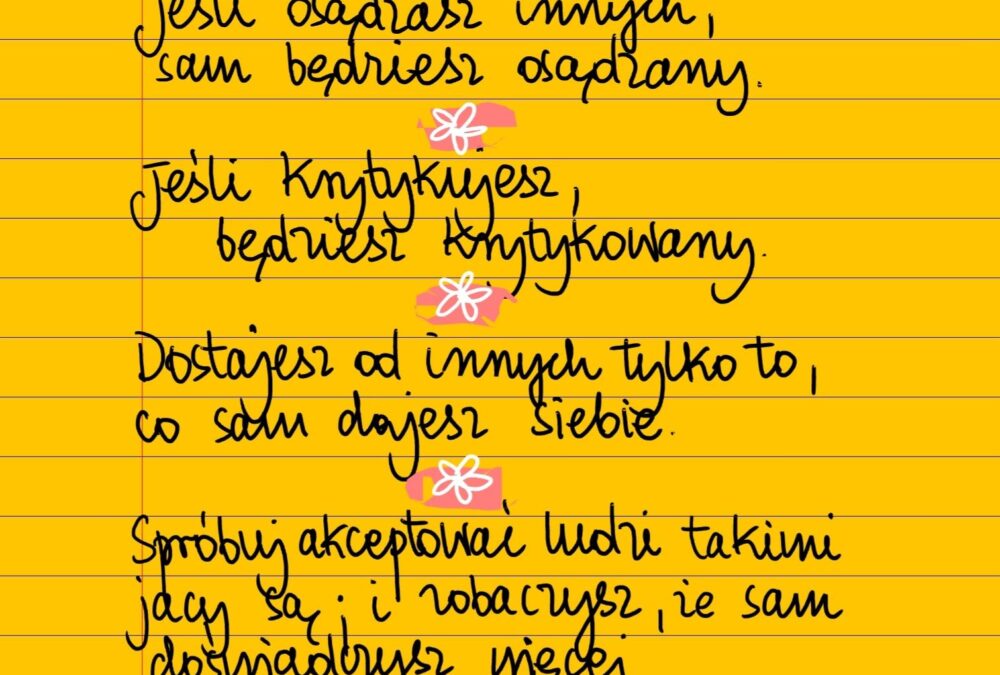 Jeśli osądzasz innych,
sam będziesz osądzany.
Jeśli krytykujesz,
będziesz krytykowany.
Dostajesz od innych tylko to,
co sam dajesz siebie.
Spróbuj akceptować ludzi takimi
jacy są; i zobaczysz, że sam
doświadczysz więcej